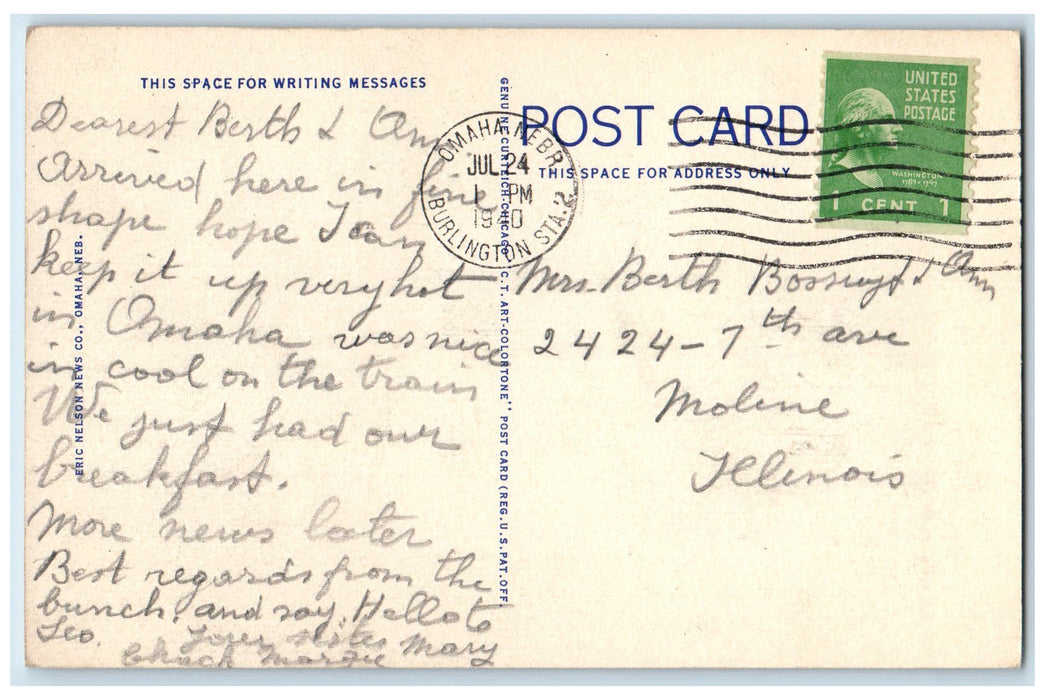 THIS SPACE FOR WRITING MESSAGES
Dearest Berth & Ann
Arrived here in fine
shape hope I can
keep it up very hot
in Omaha was nice
in cool on the train
We just had our
breakfast.
More news later
Best regards from the
bunch. and say Hello to
Leo.
Your sister Mary
Chuck Margie
ERIC NELSON NEWS CO., OMAHA, NEB.
GENUINE CURTEICH-CHICAGO "C.T. ART-COLORTONE" POST CARD (REG. U.S. PAT. OFF.)
POST CARD
THIS SPACE FOR ADDRESS ONLY
OMAHA, NEBR.
JUL 24
PM
BURLINGTON STA. 2
UNITED
STATES
POSTAGE
WASHINGTON
1789-1797
1 CENT 1
Mrs. Berth & Ann
2424 - 7th ave
Moline
Illinois